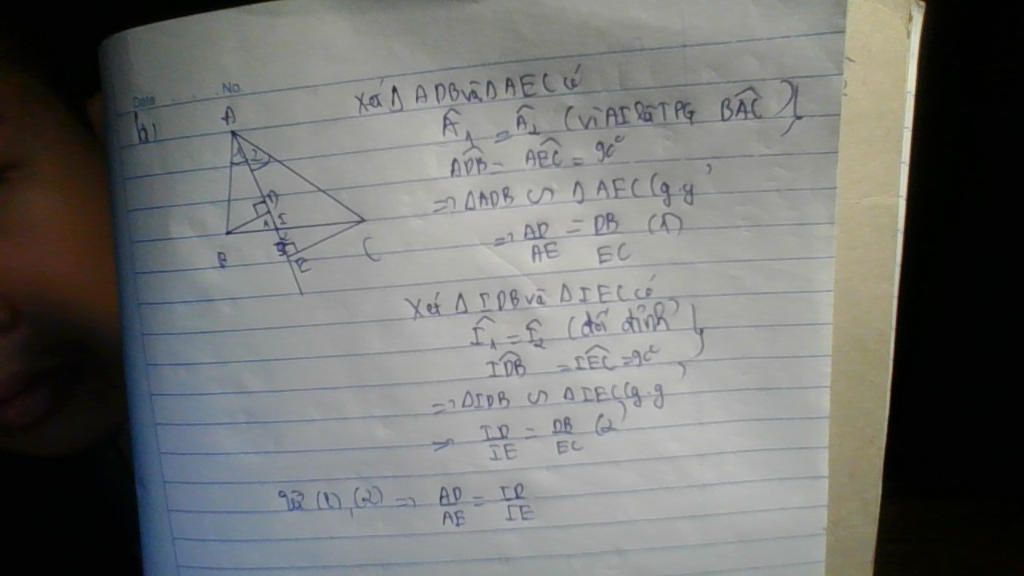 Date No
b)
Xét Δ ADB và Δ AEC có
Â₁ = Â₂ (vì AI là TPG BAC)
ADB = AEC = 90°
=> ΔADB ∽ Δ AEC (g.g)
=> AD/AE = DB/EC (1)
A
1 2
D
1 I
2
B
E
C
Xét Δ IDB và Δ IEC có
Î₁ = Î₂ (đối đỉnh)
IDB = IEC = 90°
=> ΔIDB ∽ Δ IEC (g.g)
=> ID/IE = DB/EC (2)
Từ (1), (2) => AD/AE = ID/IE